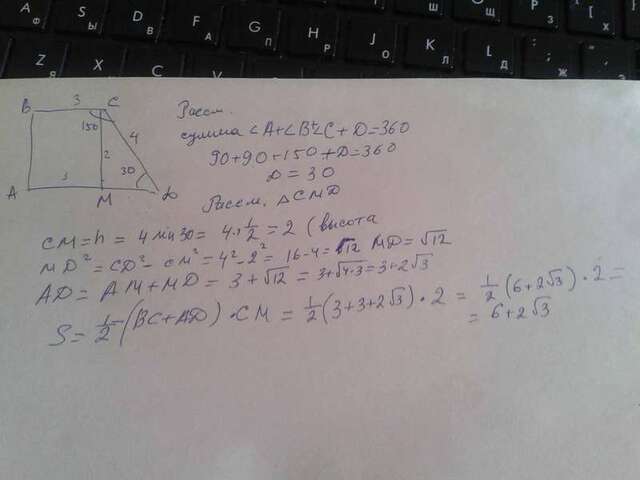 B 3 C
150
4
2
30
3
A M D
Рассм.
сумма ∠A+∠B+∠C+D=360
90+90+150+D=360
D=30
Рассм. △CMD
CM=h= 4 sin30= 4·1/2=2 (высота
MD²=CD²-CM²=4²-2²=16-4=12 MD=√12
AD=AM+MD=3+√12=3+√4·3=3+2√3
S=1/2(BC+AD)·CM=1/2(3+3+2√3)·2=1/2(6+2√3)·2=
=6+2√3